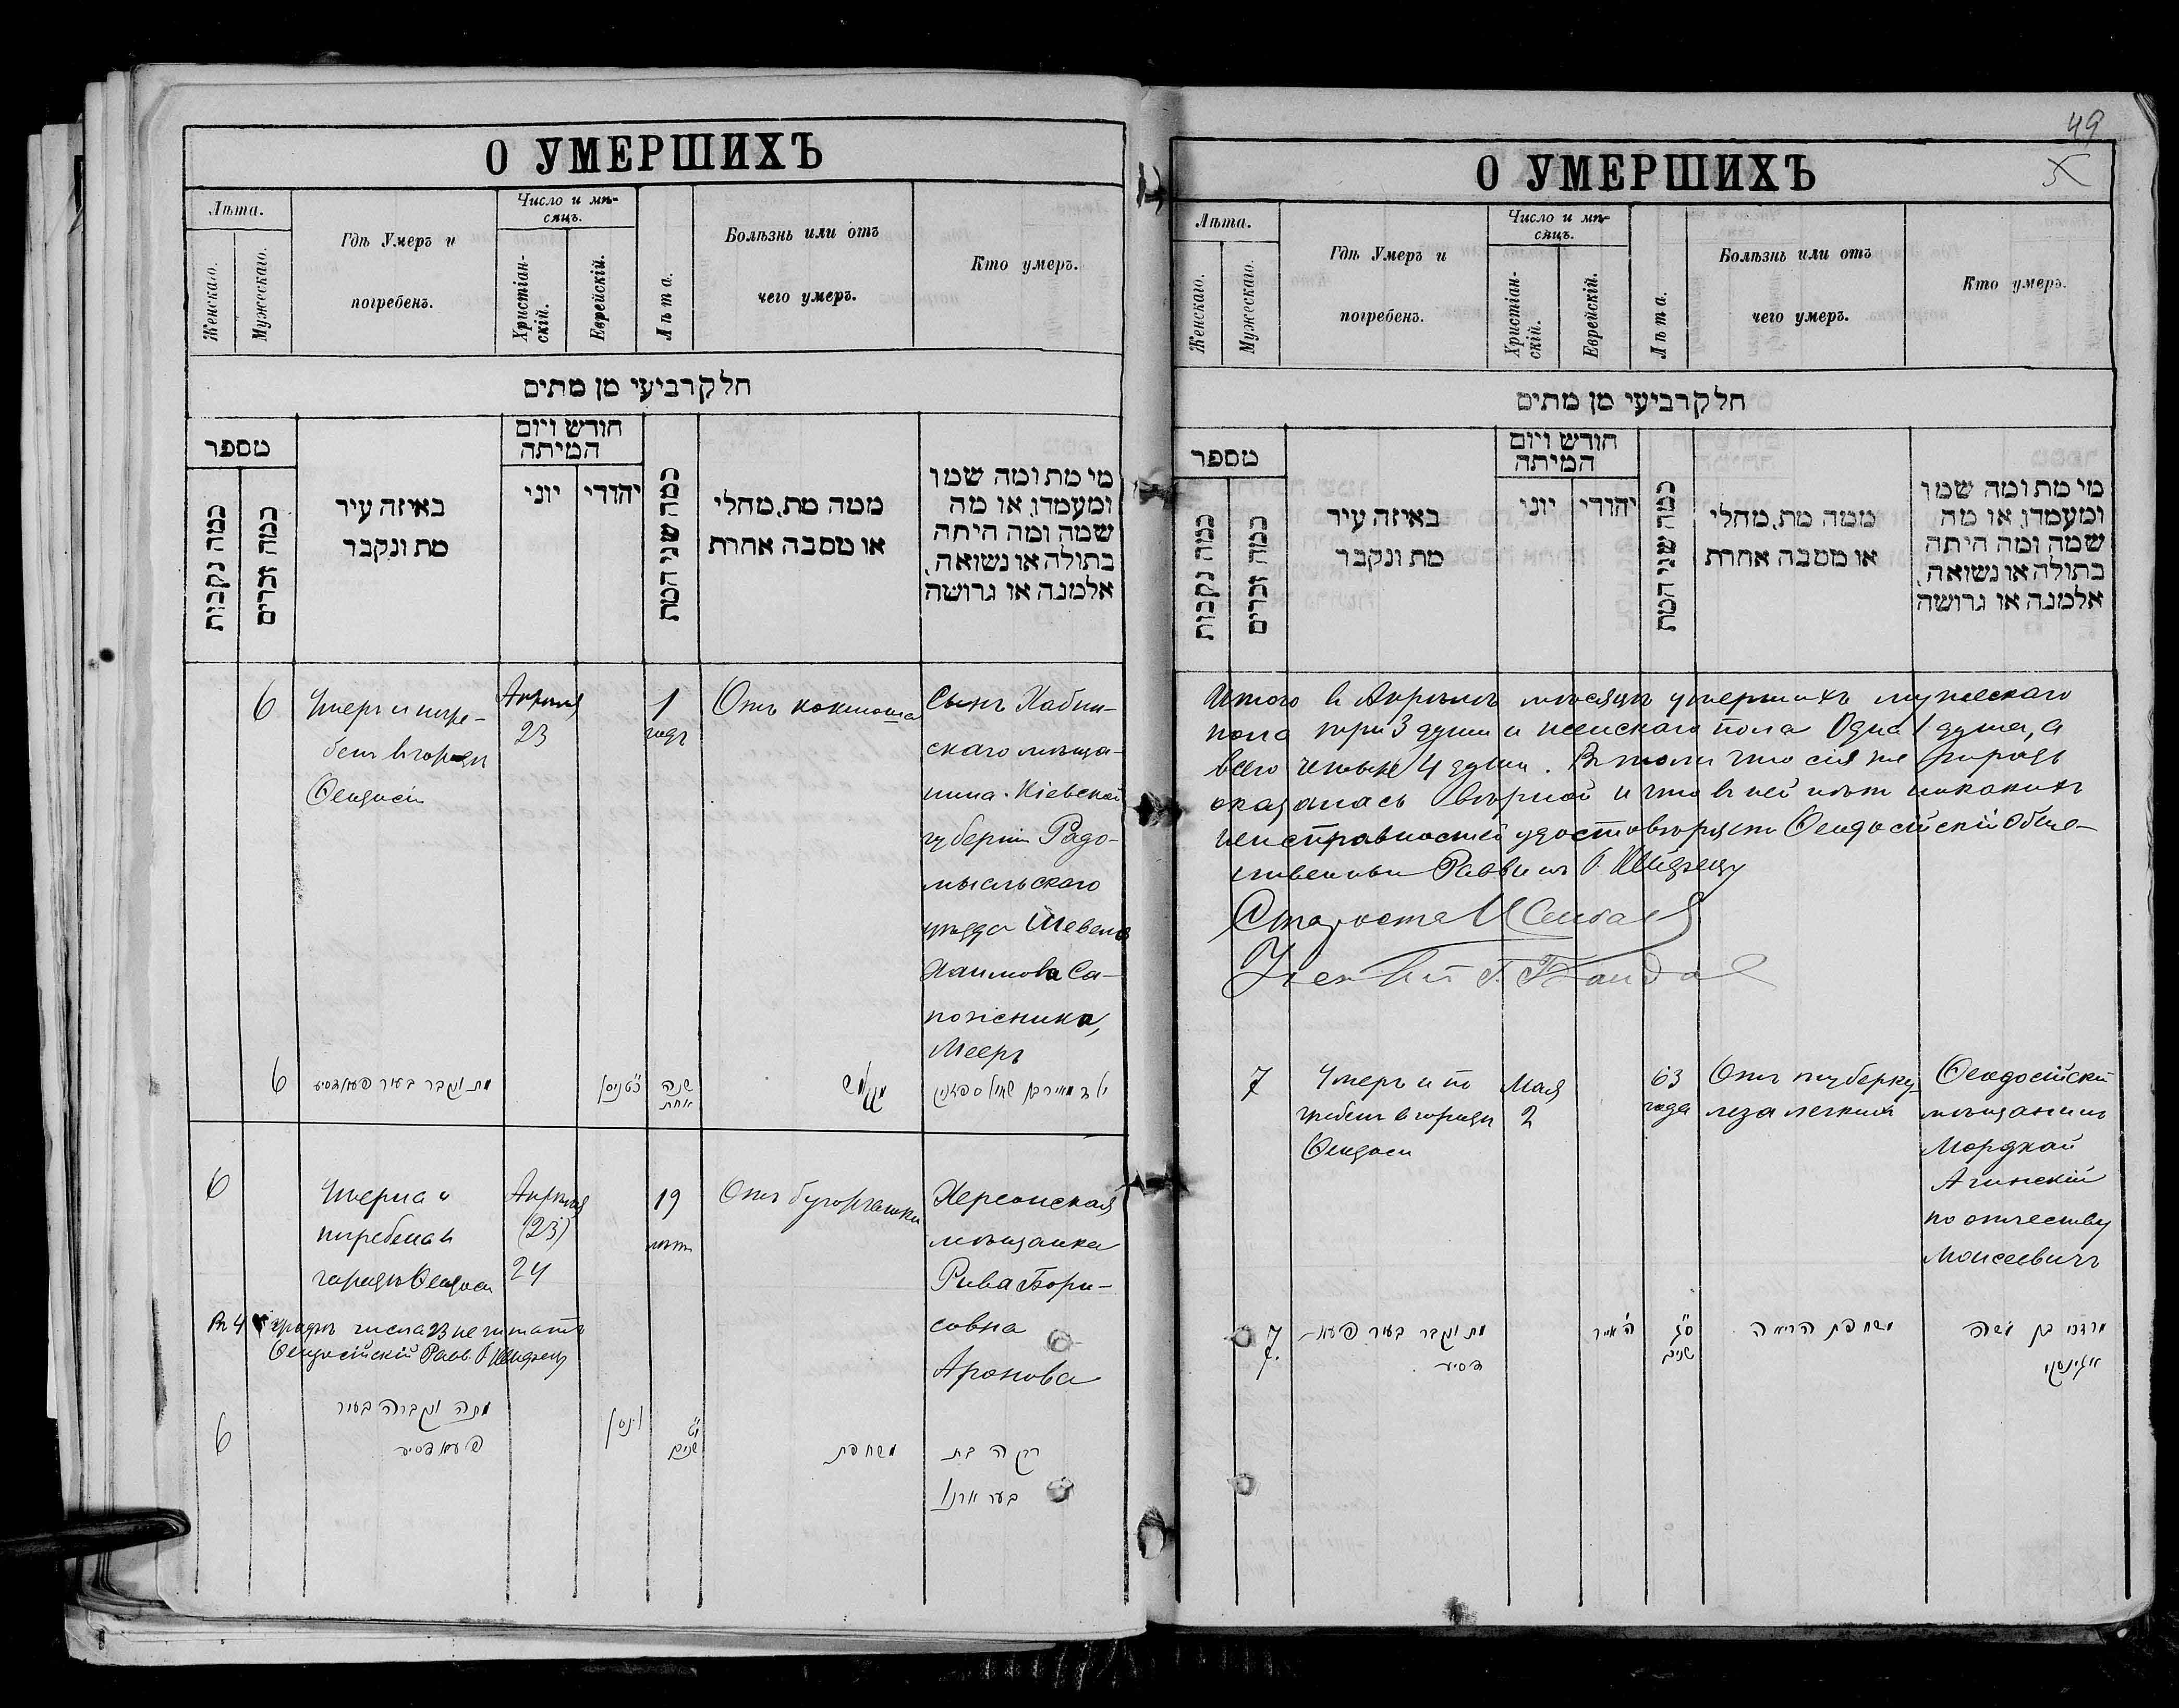 О УМЕРШИХЪ
Лѣта.
Женскаго.
Мужескаго.
Гдѣ Умеръ и
погребенъ.
Число и мѣ-
сяцъ.
Христіан-
скій.
Еврейскій.
Лѣта.
Болѣзнь или отъ
чего умеръ.
Кто умеръ.
חלק רביעי מן מתים
מספר
כמה נקבות
כמה זכרים
באיזה עיר
מת ונקבר
חודש ויום
המיתה
יוני
יהודי
כמה שני המת
ממה מת, מחלי
או מסבה אחרת
מי מת ומה שמו
ומעמדו, או מה
שמה ומה היתה
בתולה או נשואה,
אלמנה או גרושה
6
Умеръ и погре-
бенъ въ городѣ
Ѳеодосіи
Апрѣля
23
1
годъ
Отъ коклюша
Сынъ
скаго мѣща-
нина Кіевской
губерніи Радо-
мысльскаго
уѣзда
Хаимова Са-
пожника,
Мееръ
6
מת ונקבר בעיר פעאדסיע
ניסן
שנה
אחת
6
Умерла и
погребена въ
городѣ Ѳеодосіи
Апрѣля
(23)
24
19
лѣтъ
Отъ бугорчатки
Херсонская
мѣщанка
Рива Бори-
совна
Аронова
Въ 4 графѣ числа 23 не читать
Ѳеодосійскій Равв.
6
מתה ונקברה בעיר
פעאדסיע
ניסן
י״ט
שנים
משחפת
רבקה בת
בער ארנאוו
49
О УМЕРШИХЪ
Лѣта.
Женскаго.
Мужескаго.
Гдѣ Умеръ и
погребенъ.
Число и мѣ-
сяцъ.
Христіан-
скій.
Еврейскій.
Лѣта.
Болѣзнь или отъ
чего умеръ.
Кто умеръ.
חלק רביעי מן מתים
מספר
כמה נקבות
כמה זכרים
באיזה עיר
מת ונקבר
חודש ויום
המיתה
יוני
יהודי
כמה שני המת
ממה מת, מחלי
או מסבה אחרת
מי מת ומה שמו
ומעמדו, או מה
שמה ומה היתה
בתולה או נשואה,
אלמנה או גרושה
Итого въ Апрѣлѣ мѣсяцѣ умершихъ мужескаго
пола три 3 души и женскаго пола одна 1 душа, а
всего четыре 4 души. Въ томъ что сія тетрадь
оказалась вѣрной и что въ ней нѣтъ никакихъ
неисправностей удостовѣряетъ Ѳеодосійскій Обще-
ственный Раввинъ
Староста
7
Умеръ и по
гребенъ въ городѣ
Ѳеодосіи
Мая
2
63
года
Отъ туберку
леза легкихъ
Ѳеодосійскій
мѣщанинъ
Мордхай
Агинскій
по отчеству
Моисеевичъ
7
מת ונקבר בעיר פעא-
דסיע
ה׳ אייר
ס״ג
שנים
משחפת הריאה
מרדכי בן משה
אגינסקי